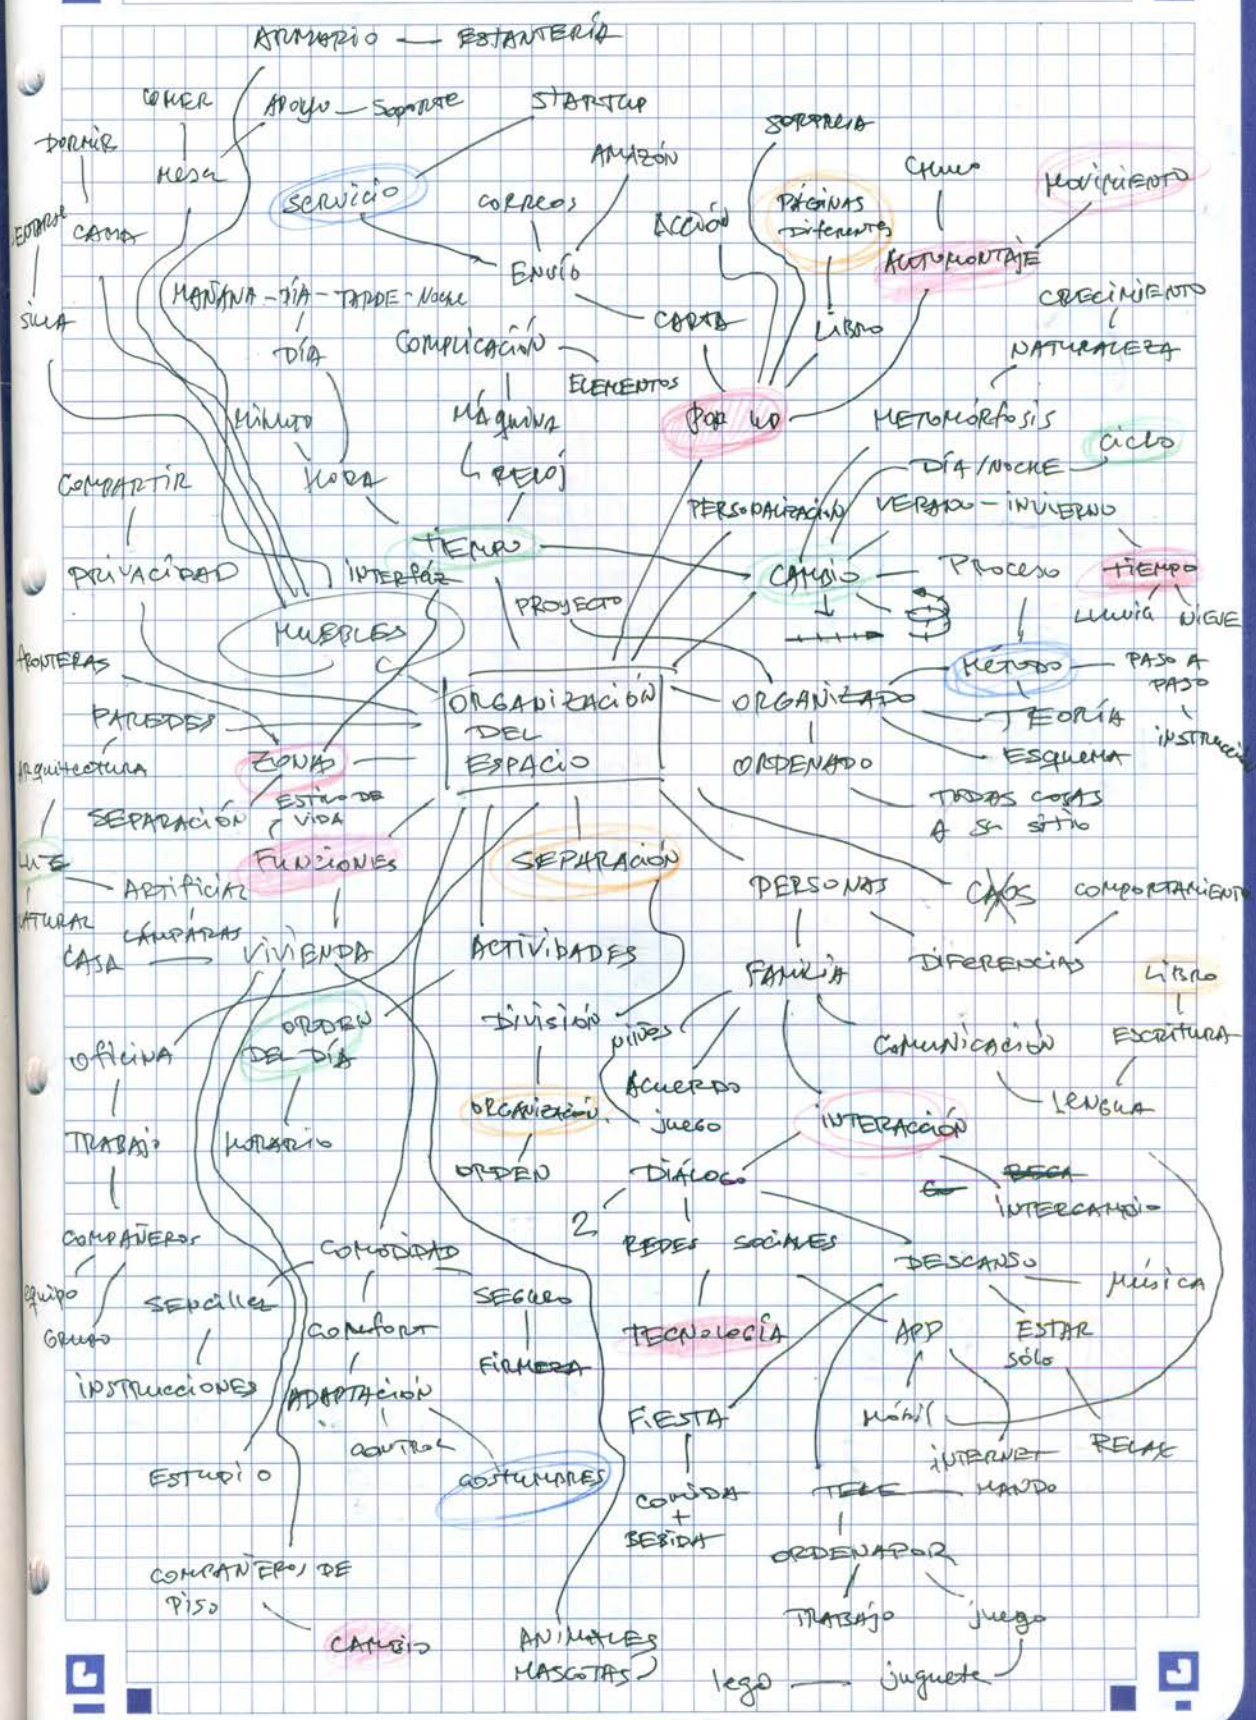 ARMARIO — ESTANTERÍA
COMER
APOYO — SOPORTE
STARTUP
SORPRESA
DORMIR
MESA
AMAZÓN
CHULO
MOVIMIENTO
SERVICIO
CORREOS
ACCIÓN
PÁGINAS
DIFERENTES
CAMA
ENVÍO
AUTOMONTAJE
MAÑANA - DÍA - TARDE - NOCHE
CARTA
LIBRO
CRECIMIENTO
SILLA
DÍA
COMPLICACIÓN
NATURALEZA
ELEMENTOS
MINUTO
MÁQUINA
METOMÓRFOSIS
CICLO
COMPARTIR
HORA
RELOJ
DÍA/NOCHE
PERSONALIZACIÓN
VERANO - INVIERNO
TIEMPO
PRIVACIDAD
INTERFAZ
CAMBIO
PROCESO
TIEMPO
PROYECTO
LLUVIA
NIEVE
MUEBLES
FRONTERAS
MÉTODO
PASO A
PASO
ORGANIZACIÓN
DEL
ESPACIO
ORGANIZADO
PAREDES
TEORÍA
ARQUITECTURA
ZONAS
ORDENADO
ESQUEMA
INSTRUCCIÓN
SEPARACIÓN
ESTILO DE
VIDA
TODAS COSAS
A SU SITIO
LUZ
FUNCIONES
SEPARACIÓN
ARTIFICIAL
PERSONAS
CAOS
COMPORTAMIENTO
NATURAL
LÁMPÁRAS
CASA
VIVIENDA
ACTIVIDADES
FAMILIA
DIFERENCIAS
LIBRO
OFICINA
ORDEN
DEL DÍA
DIVISIÓN
NIÑOS
COMUNICACIÓN
ESCRITURA
ACUERDO
ORGANIZACIÓN
JUEGO
INTERACCIÓN
LENGUA
TRABAJO
HORARIO
ORDÉN
DIÁLOGO
BECA
INTERCAMBIO
COMPAÑEROS
2
REDES SOCIALES
COMODIDAD
DESCANSO
MÚSICA
EQUIPO
SENCILLEZ
SEGURO
GRUPO
COMFORT
TECNOLOGÍA
APP
ESTAR
SÓLO
FIRMEZA
INSTRUCCIONES
ADAPTACIÓN
FIESTA
MÓBIL
CONTROL
INTERNET
RELAX
ESTUDIO
COSTUMBRES
COMIDA
+
BEBIDA
TELE
MANDO
ORDENADOR
COMPAÑEROS DE
PISO
TRABAJO
JUEGO
CAMBIO
ANIMALES
MASCOTAS
lego — juguete